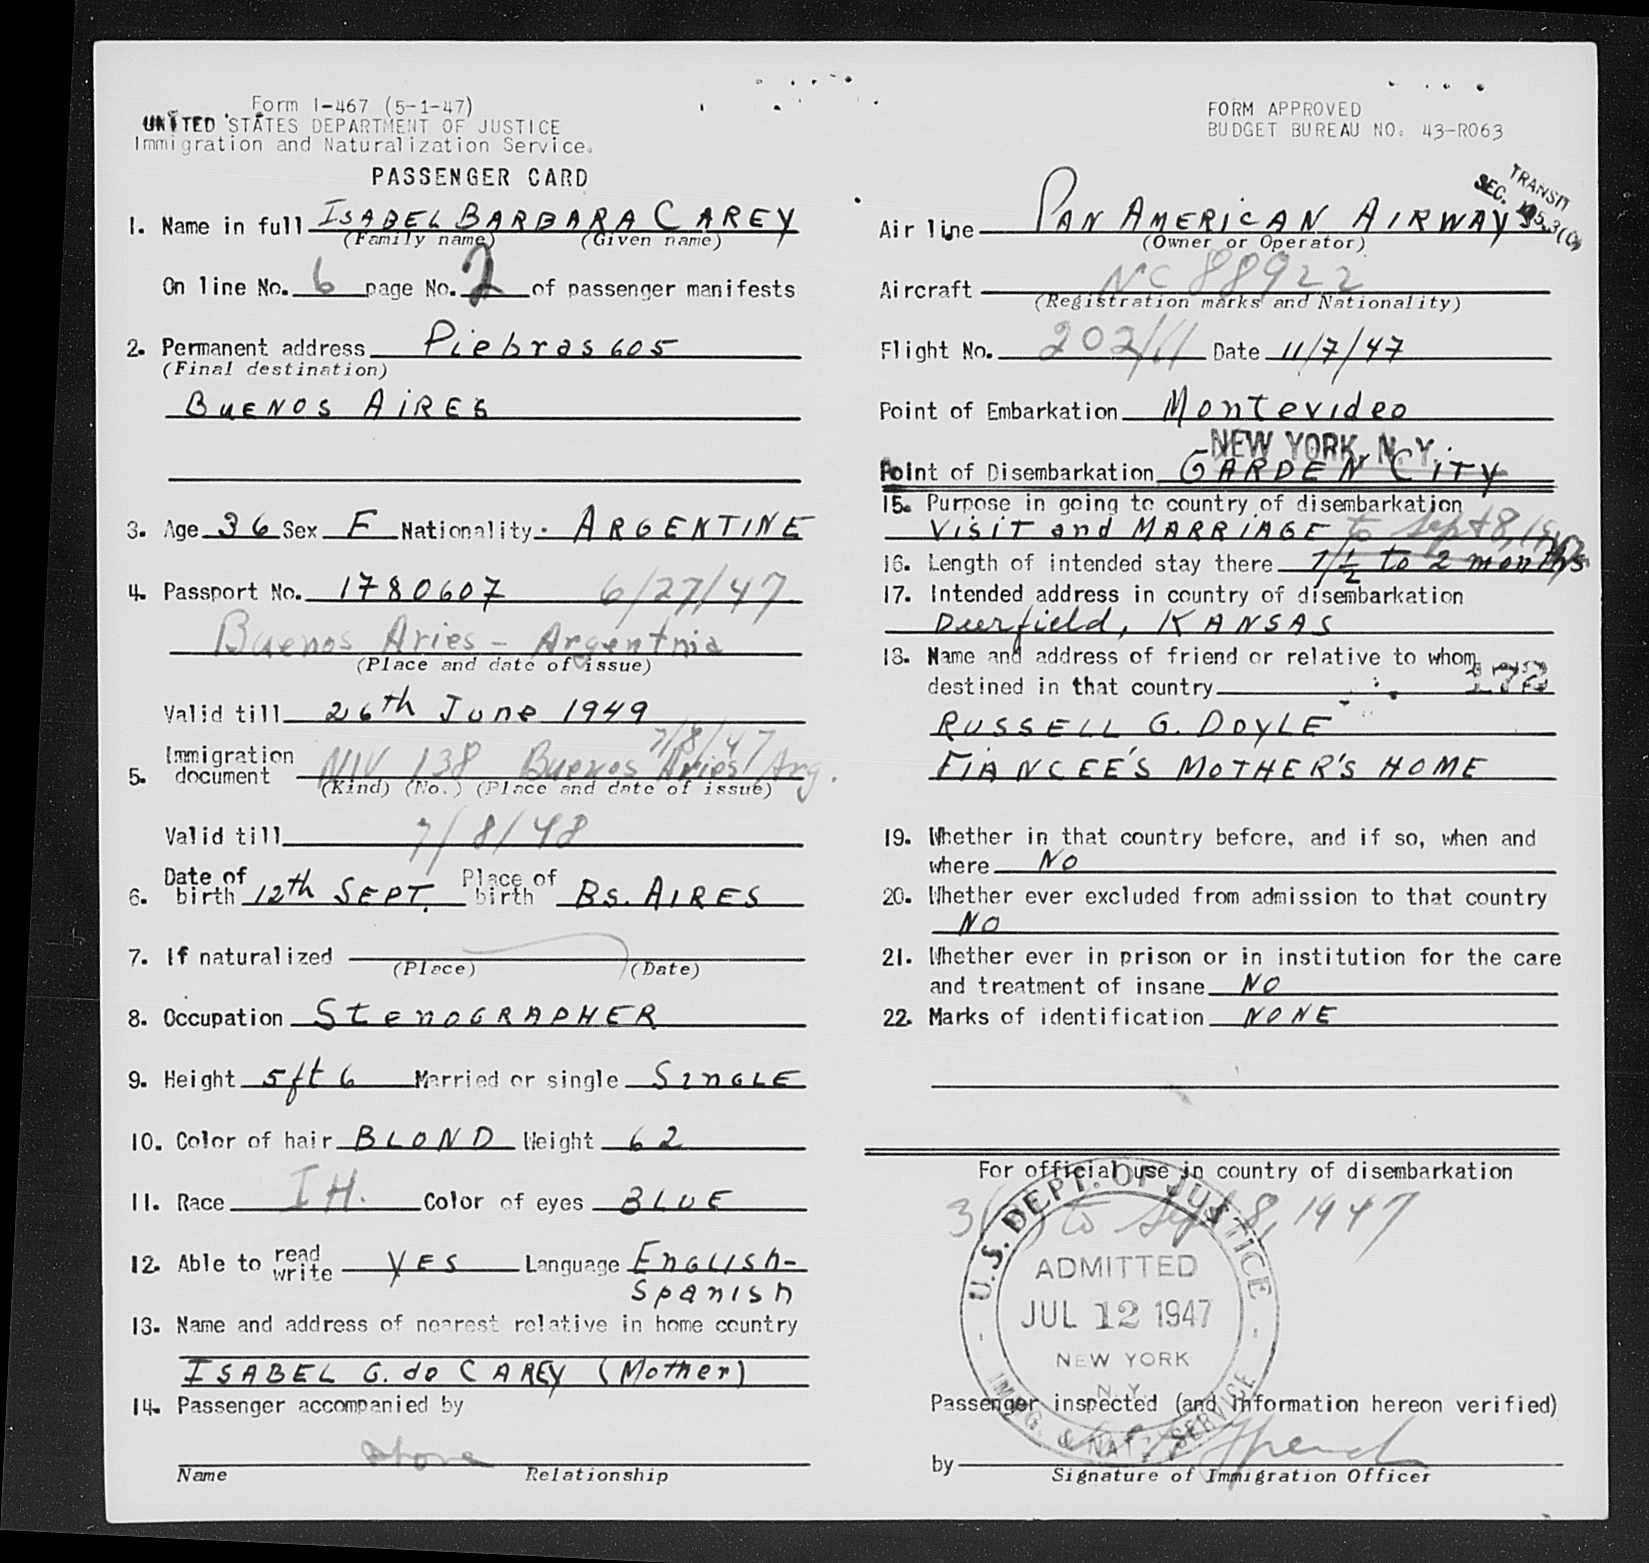 Form I-467 (5-1-47)
UNITED STATES DEPARTMENT OF JUSTICE
Immigration and Naturalization Service.
PASSENGER CARD
1. Name in full ISABEL BARBARA CAREY
(Family name) (Given name)
On line No. 6 page No. 2 of passenger manifests
2. Permanent address Piebras 605
(Final destination)
BUENOS AIRES
3. Age 36 Sex F Nationality ARGENTINE
4. Passport No. 1780607 6/27/47
Buenos Aries - Argentnia
(Place and date of issue)
Valid till 26th June 1949
7/8/47
5. Immigration document NIV 138 Buenos Aries Arg.
(Kind) (No.) (Place and date of issue)
Valid till 7/8/48
6. Date of birth 12th SEPT. Place of birth BS. AIRES
7. If naturalized
(Place) (Date)
8. Occupation STENOGRAPHER
9. Height 5ft 6 Married or single SINGLE
10. Color of hair BLOND Weight 62
11. Race IH. Color of eyes BLUE
12. Able to read write YES Language ENGLISH-
Spanish
13. Name and address of nearest relative in home country
ISABEL G. de CAREY (Mother)
14. Passenger accompanied by
alone
Name Relationship
FORM APPROVED
BUDGET BUREAU NO. 43-R063
TRANSIT
SEC.
Air line PAN AMERICAN AIRWAYS
(Owner or Operator)
Aircraft NC 88922
(Registration marks and Nationality)
Flight No. 202/11 Date 11/7/47
Point of Embarkation Montevideo
NEW YORK, N.Y.
Point of Disembarkation GARDEN CITY
15. Purpose in going to country of disembarkation
VISIT and MARRIAGE to Sept 8, 1947
16. Length of intended stay there 1/½ to 2 months
17. Intended address in country of disembarkation
Deerfield, KANSAS
18. Name and address of friend or relative to whom
destined in that country 172
RUSSELL G. DOYLE
FIANCEE'S MOTHER'S HOME
19. Whether in that country before, and if so, when and
where NO
20. Whether ever excluded from admission to that country
NO
21. Whether ever in prison or in institution for the care
and treatment of insane NO
22. Marks of identification NONE
For official use in country of disembarkation
to Sept 8, 1947
U.S. DEPT. OF JUSTICE
ADMITTED
JUL 12 1947
NEW YORK
N.Y.
IMMIG. & NATZ. SERVICE
Passenger inspected (and information hereon verified)
by
Signature of Immigration Officer